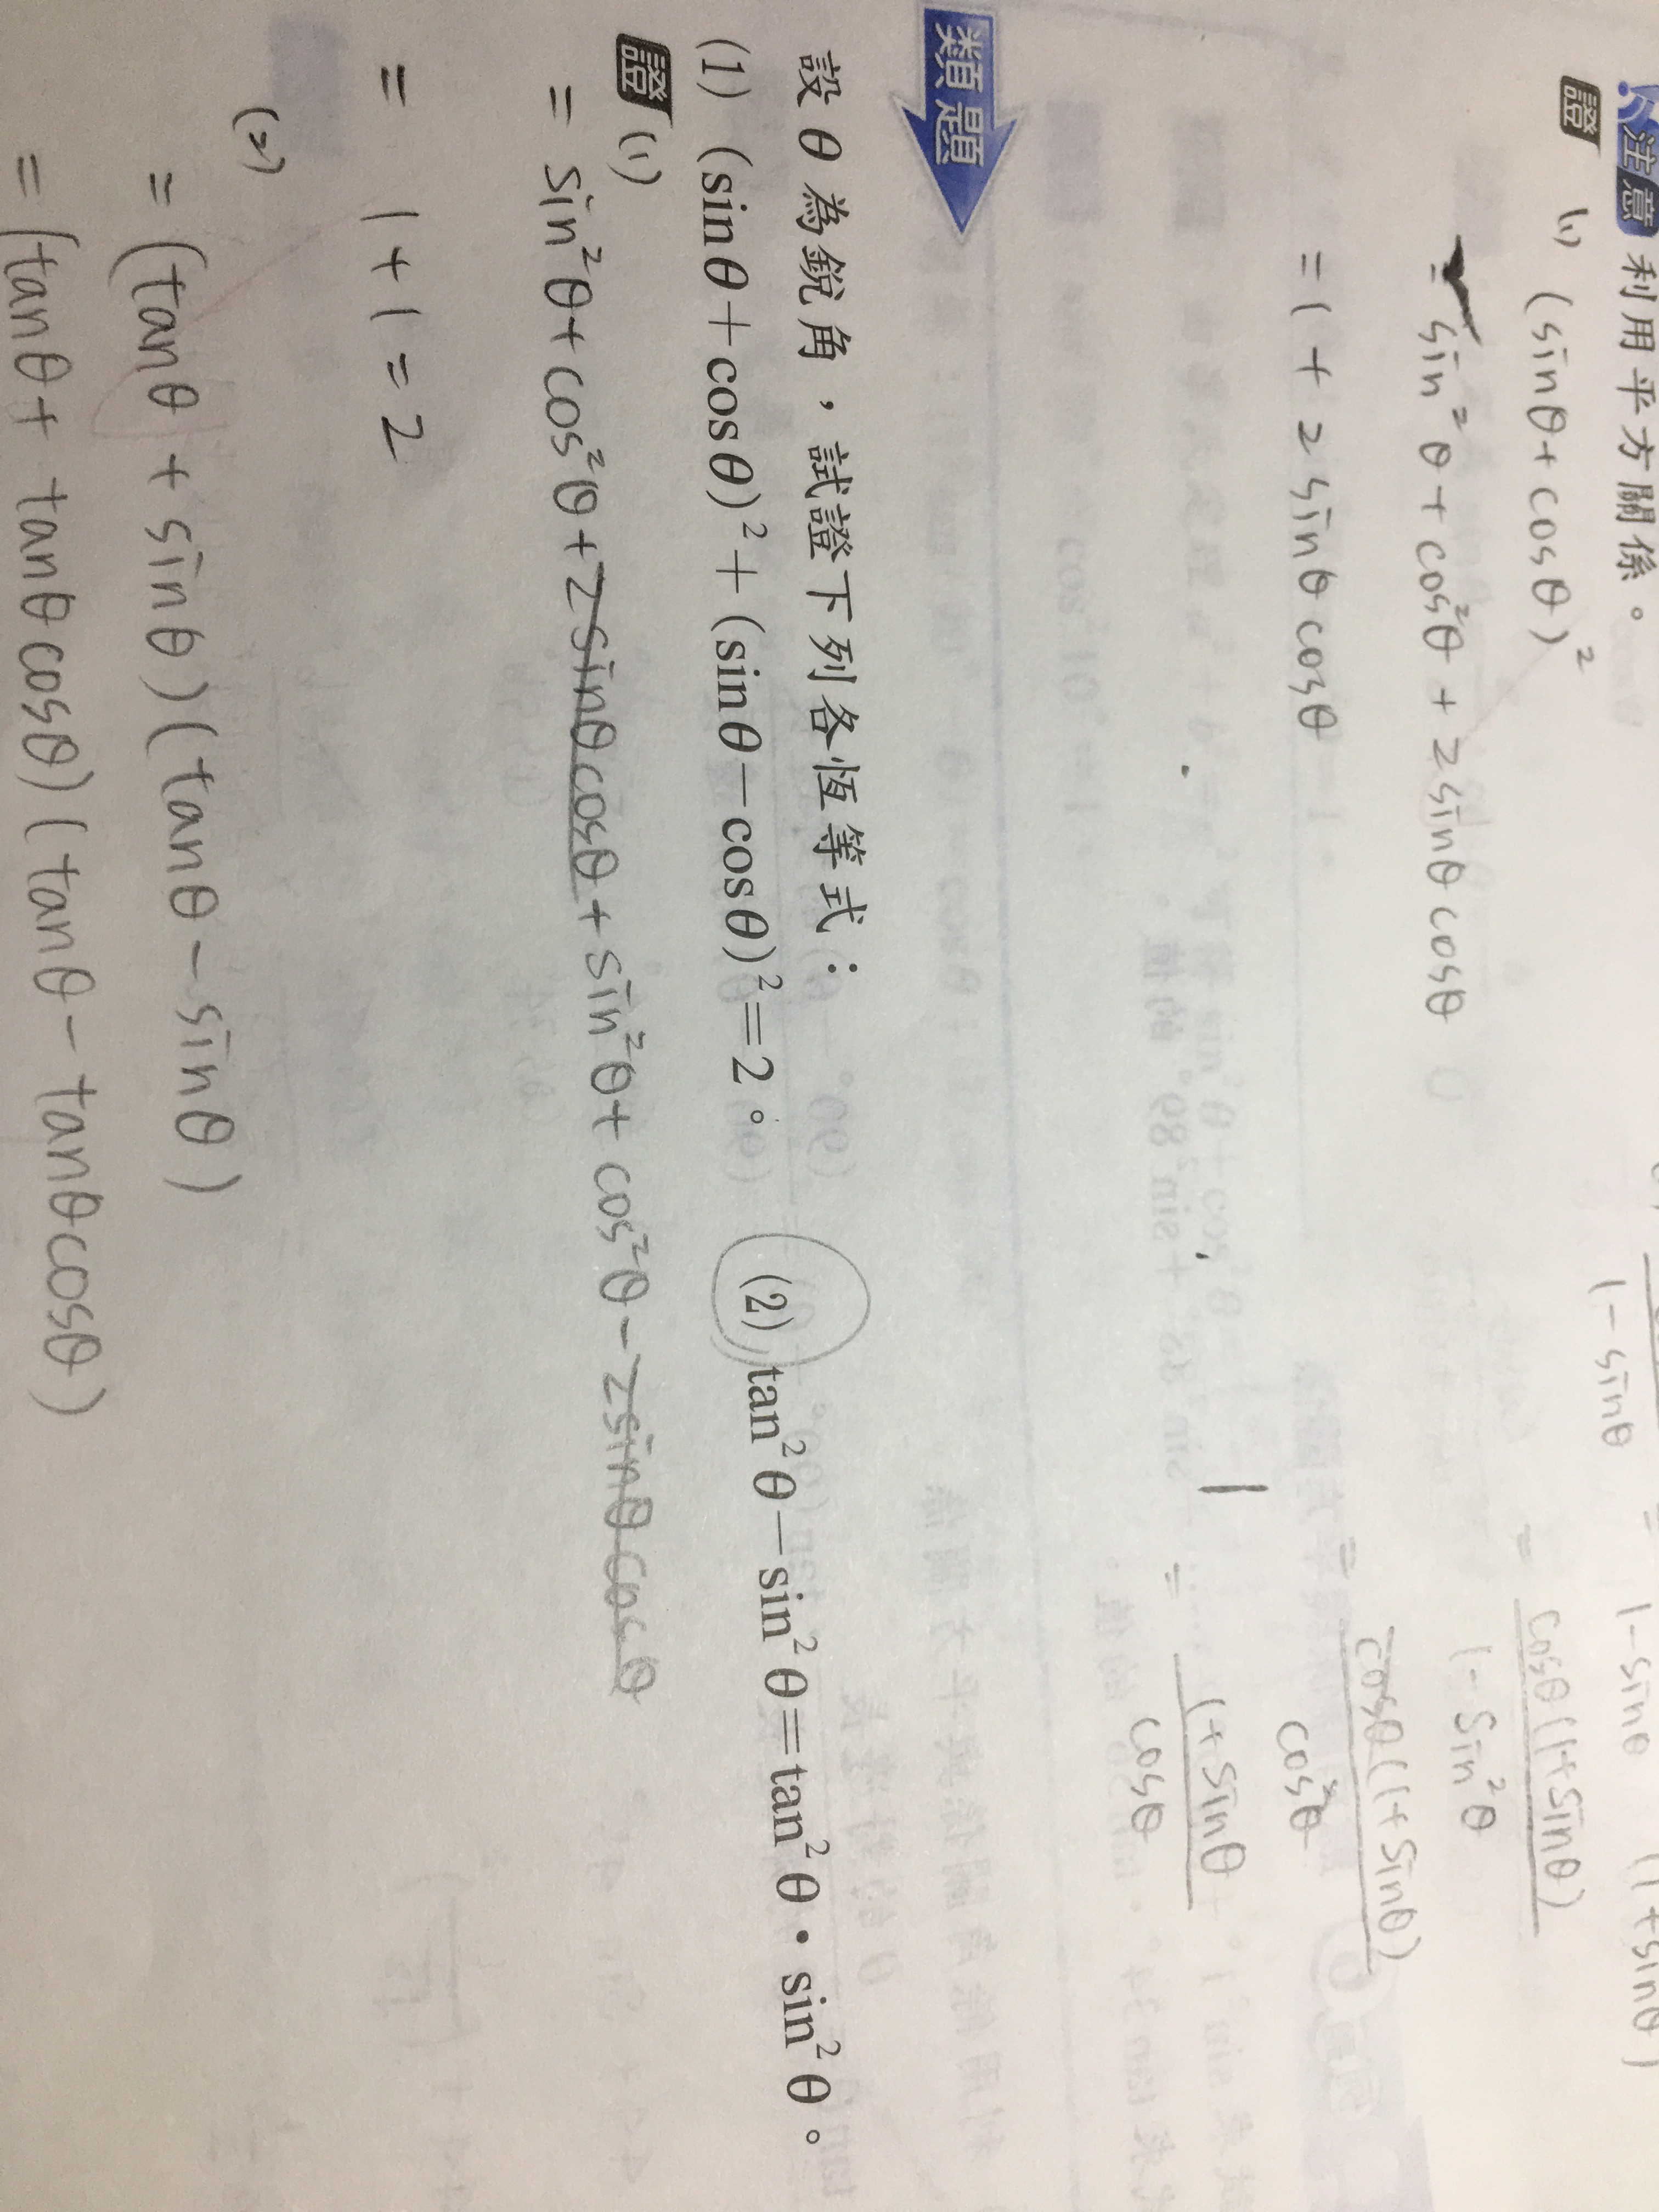 注意 利用平方關係。
證 (1) (sinθ+cosθ)²
= sin²θ+cos²θ+2sinθcosθ
=1+2sinθcosθ
1-sinθ
= 1-sinθ (1+sinθ)
= cosθ(1+sinθ)
1-sin²θ
= cosθ(1+sinθ)
cos²θ
= 1+sinθ
cosθ
類題
設θ為銳角，試證下列各恆等式：
(1) (sinθ+cosθ)²+(sinθ−cosθ)²=2。 (2) tan²θ−sin²θ=tan²θ·sin²θ。
證 (1)
= sin²θ+cos²θ+2sinθcosθ+sin²θ+cos²θ-2sinθcosθ
= 1+1=2
(2)
= (tanθ+sinθ)(tanθ-sinθ)
= (tanθ+tanθcosθ)(tanθ-tanθcosθ)